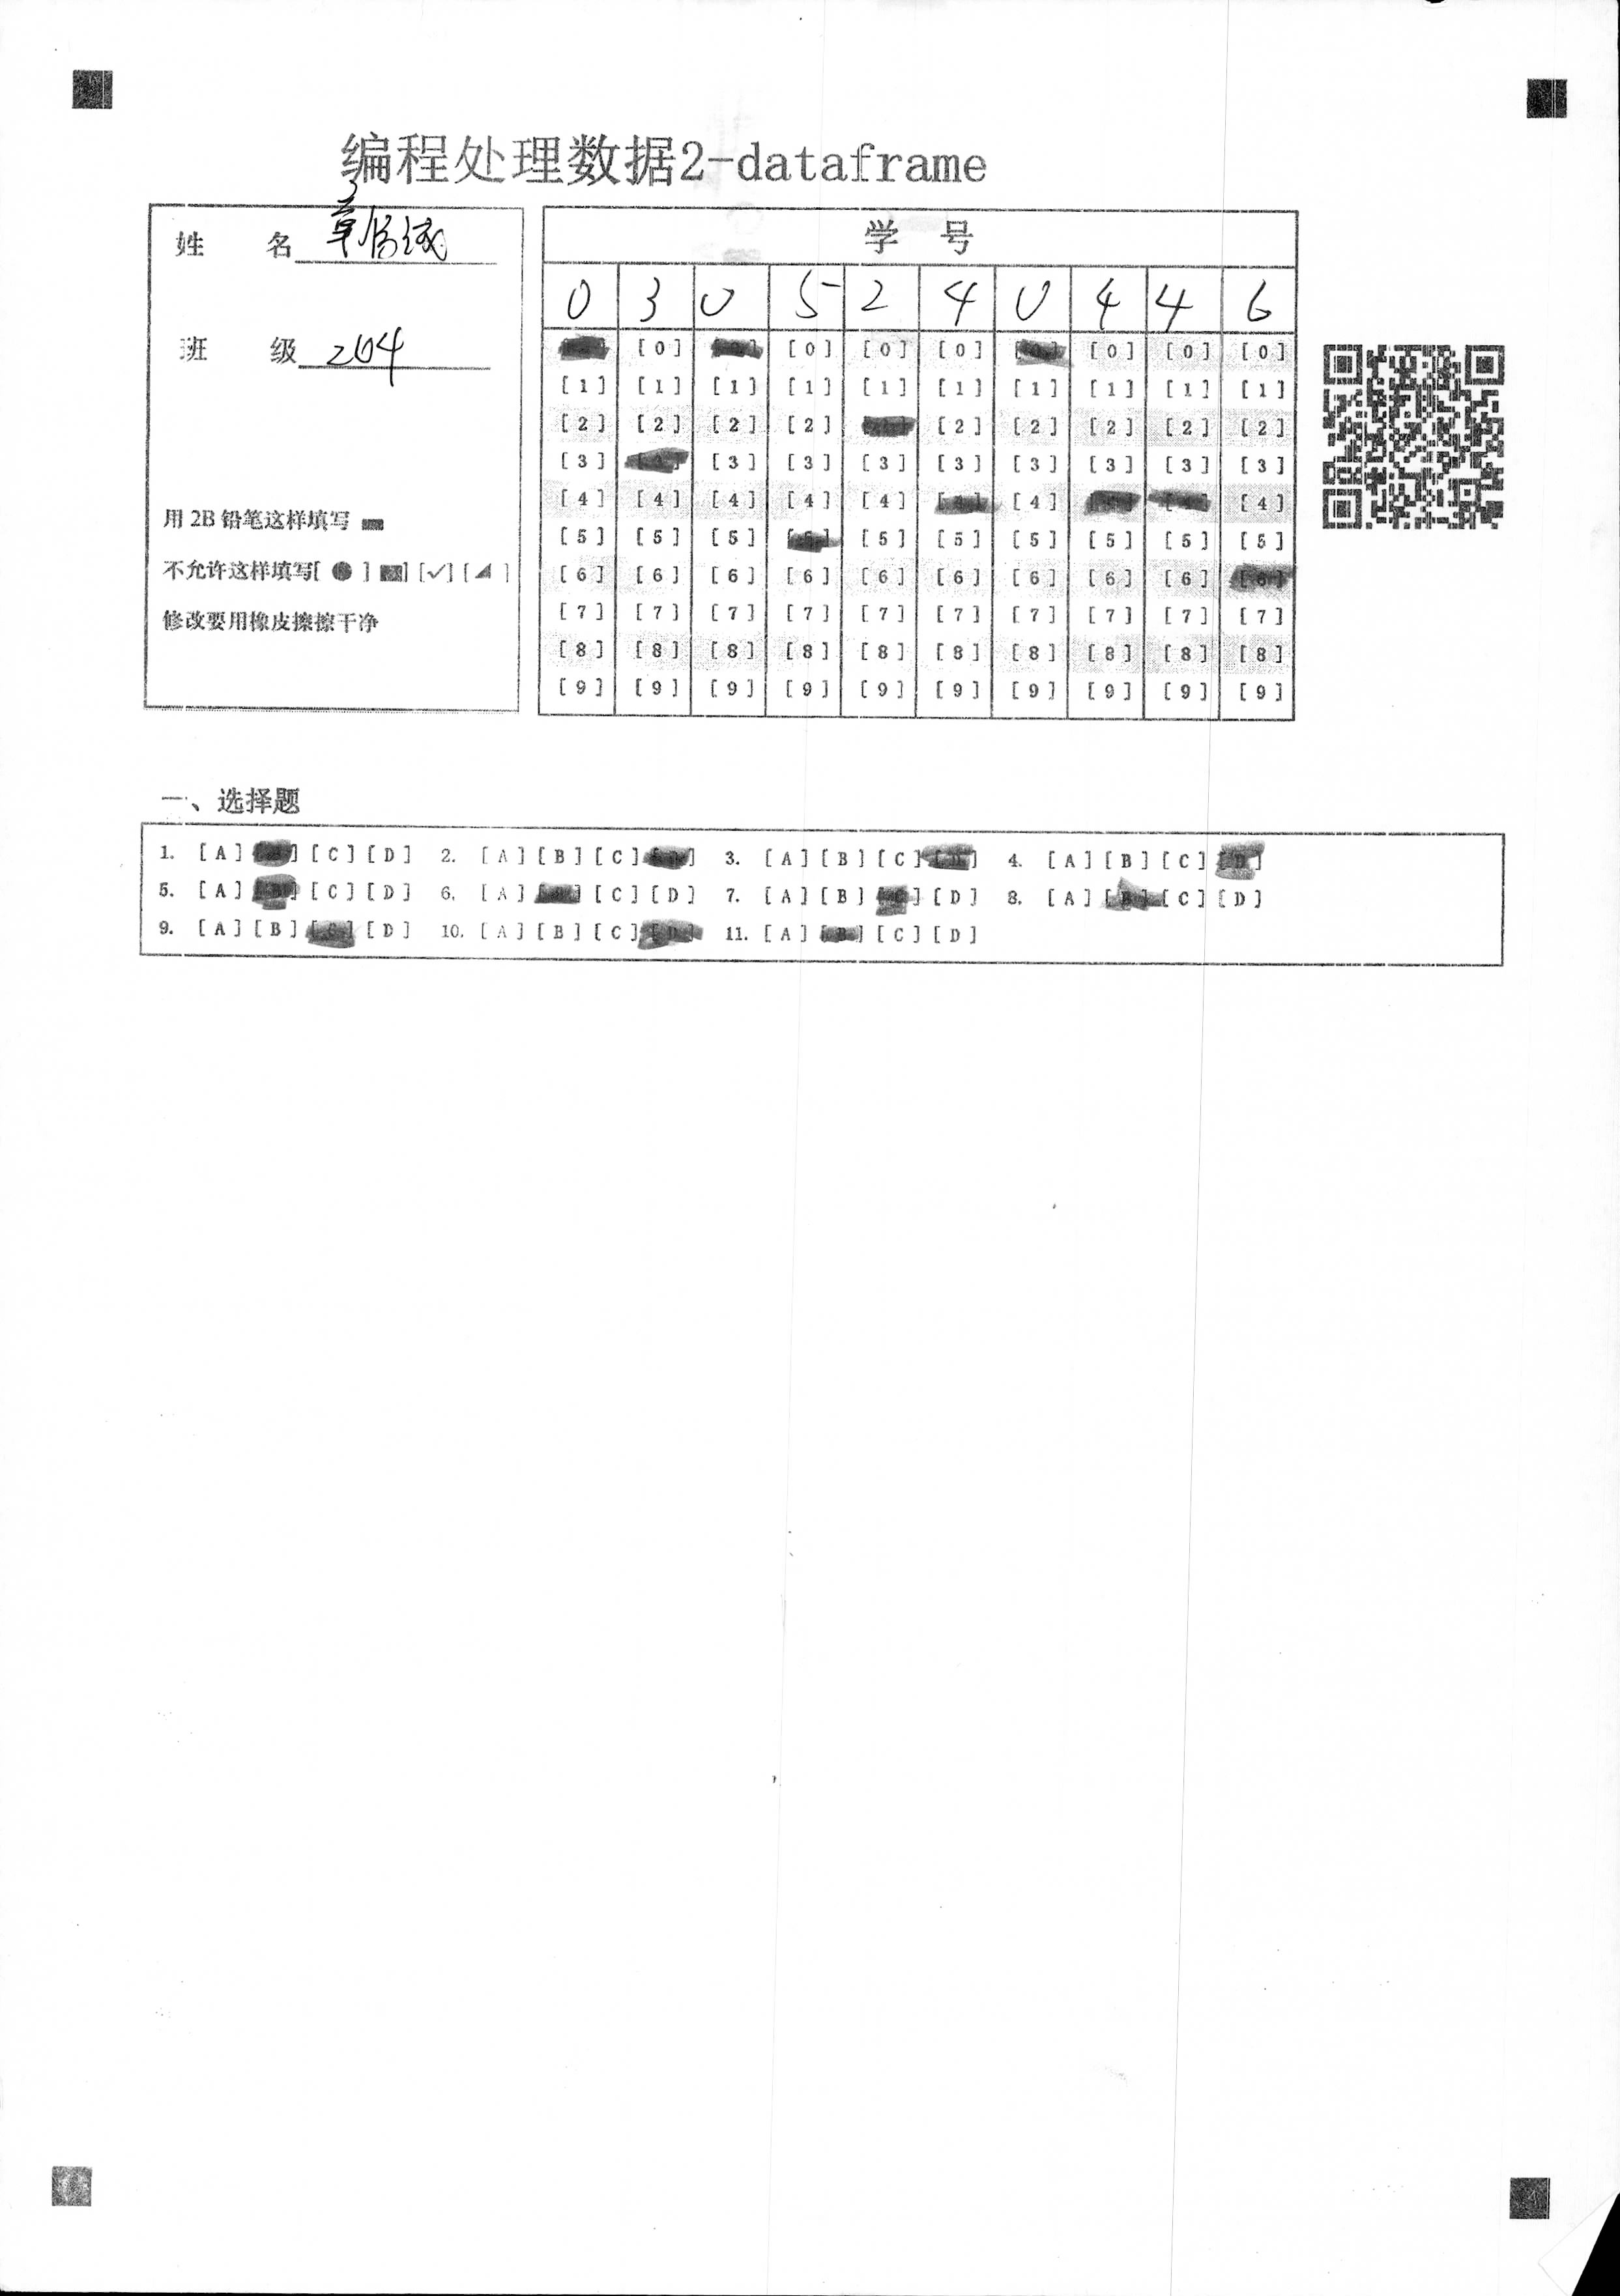 编程处理数据2-dataframe
姓 名
班 级 204
用 2B 铅笔这样填写
不允许这样填写[ ● ] [ ] [✓] [ ]
修改要用橡皮擦擦干净
学 号
0 3 0 5 2 4 0 4 4 6
[0] [0] [0] [0] [0] [0] [0] [0]
[1] [1] [1] [1] [1] [1] [1] [1] [1] [1]
[2] [2] [2] [2] [2] [2] [2] [2] [2]
[3] [3] [3] [3] [3] [3] [3] [3] [3]
[4] [4] [4] [4] [4] [4] [4]
[5] [5] [5] [5] [5] [5] [5] [5] [5] [5]
[6] [6] [6] [6] [6] [6] [6] [6] [6] [6]
[7] [7] [7] [7] [7] [7] [7] [7] [7] [7]
[8] [8] [8] [8] [8] [8] [8] [8] [8] [8]
[9] [9] [9] [9] [9] [9] [9] [9] [9] [9]
一、选择题
1. [A] [C] [D] 2. [A] [B] [C] 3. [A] [B] [C] [D] 4. [A] [B] [C] [D]
5. [A] [B] [C] [D] 6. [A] [C] [D] 7. [A] [B] [C] [D] 8. [A] [B] [C] [D]
9. [A] [B] [C] [D] 10. [A] [B] [C] [D] 11. [A] [B] [C] [D]